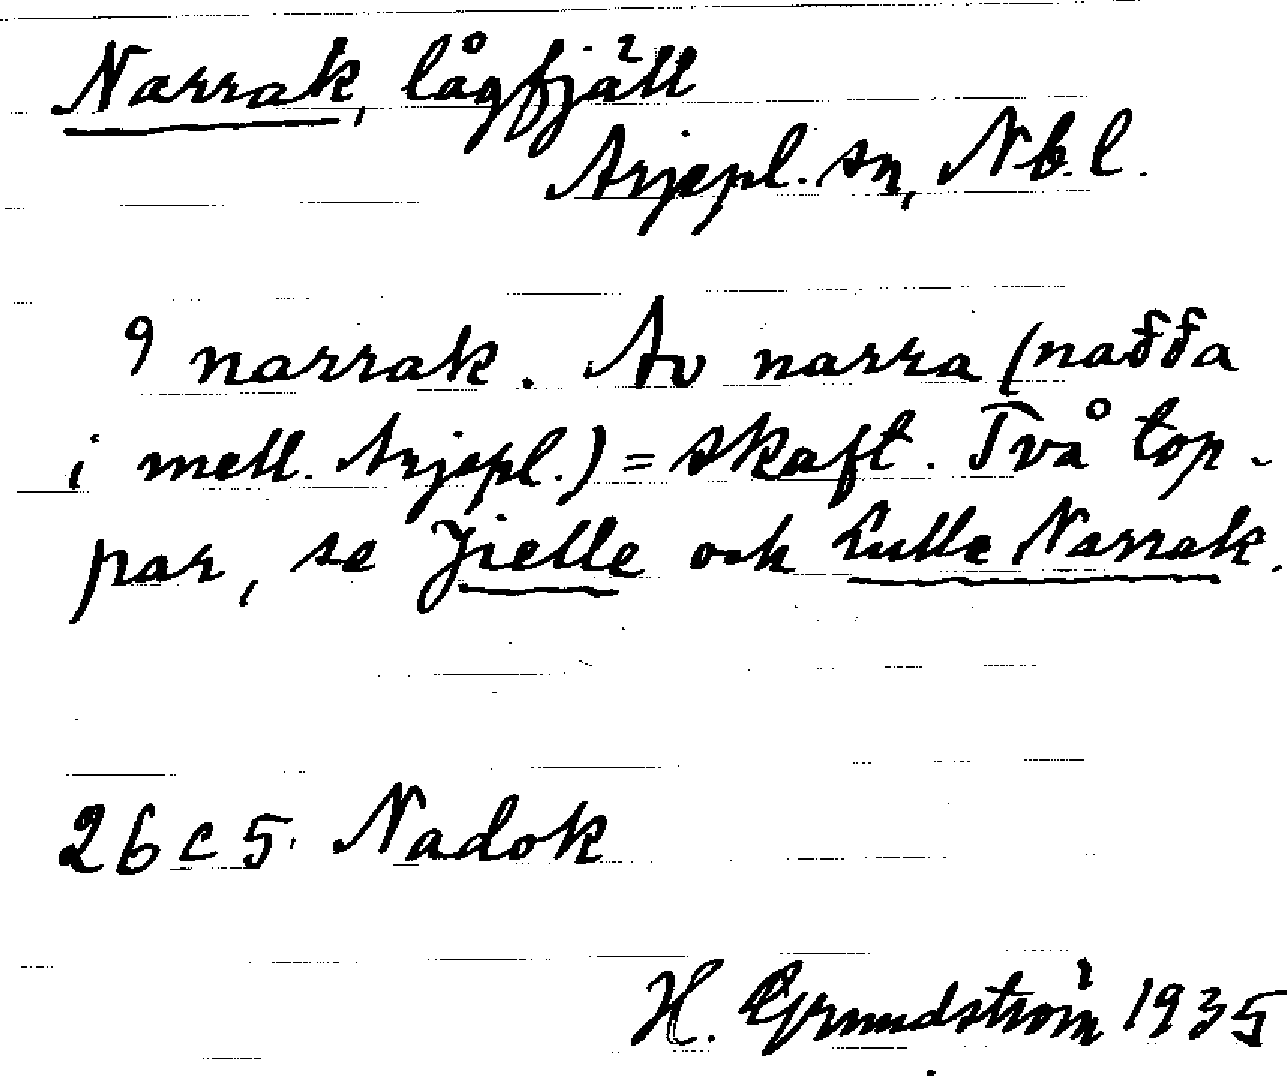 Narrak, lågfjäll
Arjepl. sn, Nb. l.
narrak. Av narra (nađđa
i mell. Arjepl.) = skaft. Två top-
par, se Jielle och Lulle Narrak.
26 c 5. Nadok
H. Grundström 1935